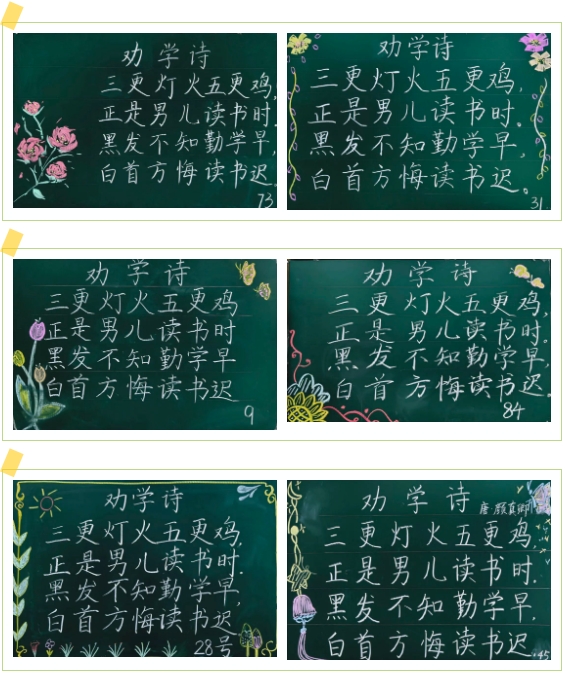 劝学诗
三更灯火五更鸡,
正是男儿读书时.
黑发不知勤学早,
白首方悔读书迟.
73
劝学诗
三更灯火五更鸡,
正是男儿读书时.
黑发不知勤学早
白首方悔读书迟。
31
劝学诗
三更灯火五更鸡
正是男儿读书时
黑发不知勤学早
白首方悔读书迟
9
劝学诗
三更灯火五更鸡,
正是男儿读书时.
黑发不知勤学早,
白首方悔读书迟.
84
劝学诗
三更灯火五更鸡,
正是男儿读书时.
黑发不知勤学早,
白首方悔读书迟.
28号
劝学诗
唐·颜真卿
三更灯火五更鸡,
正是男儿读书时.
黑发不知勤学早,
白首方悔读书迟.
45